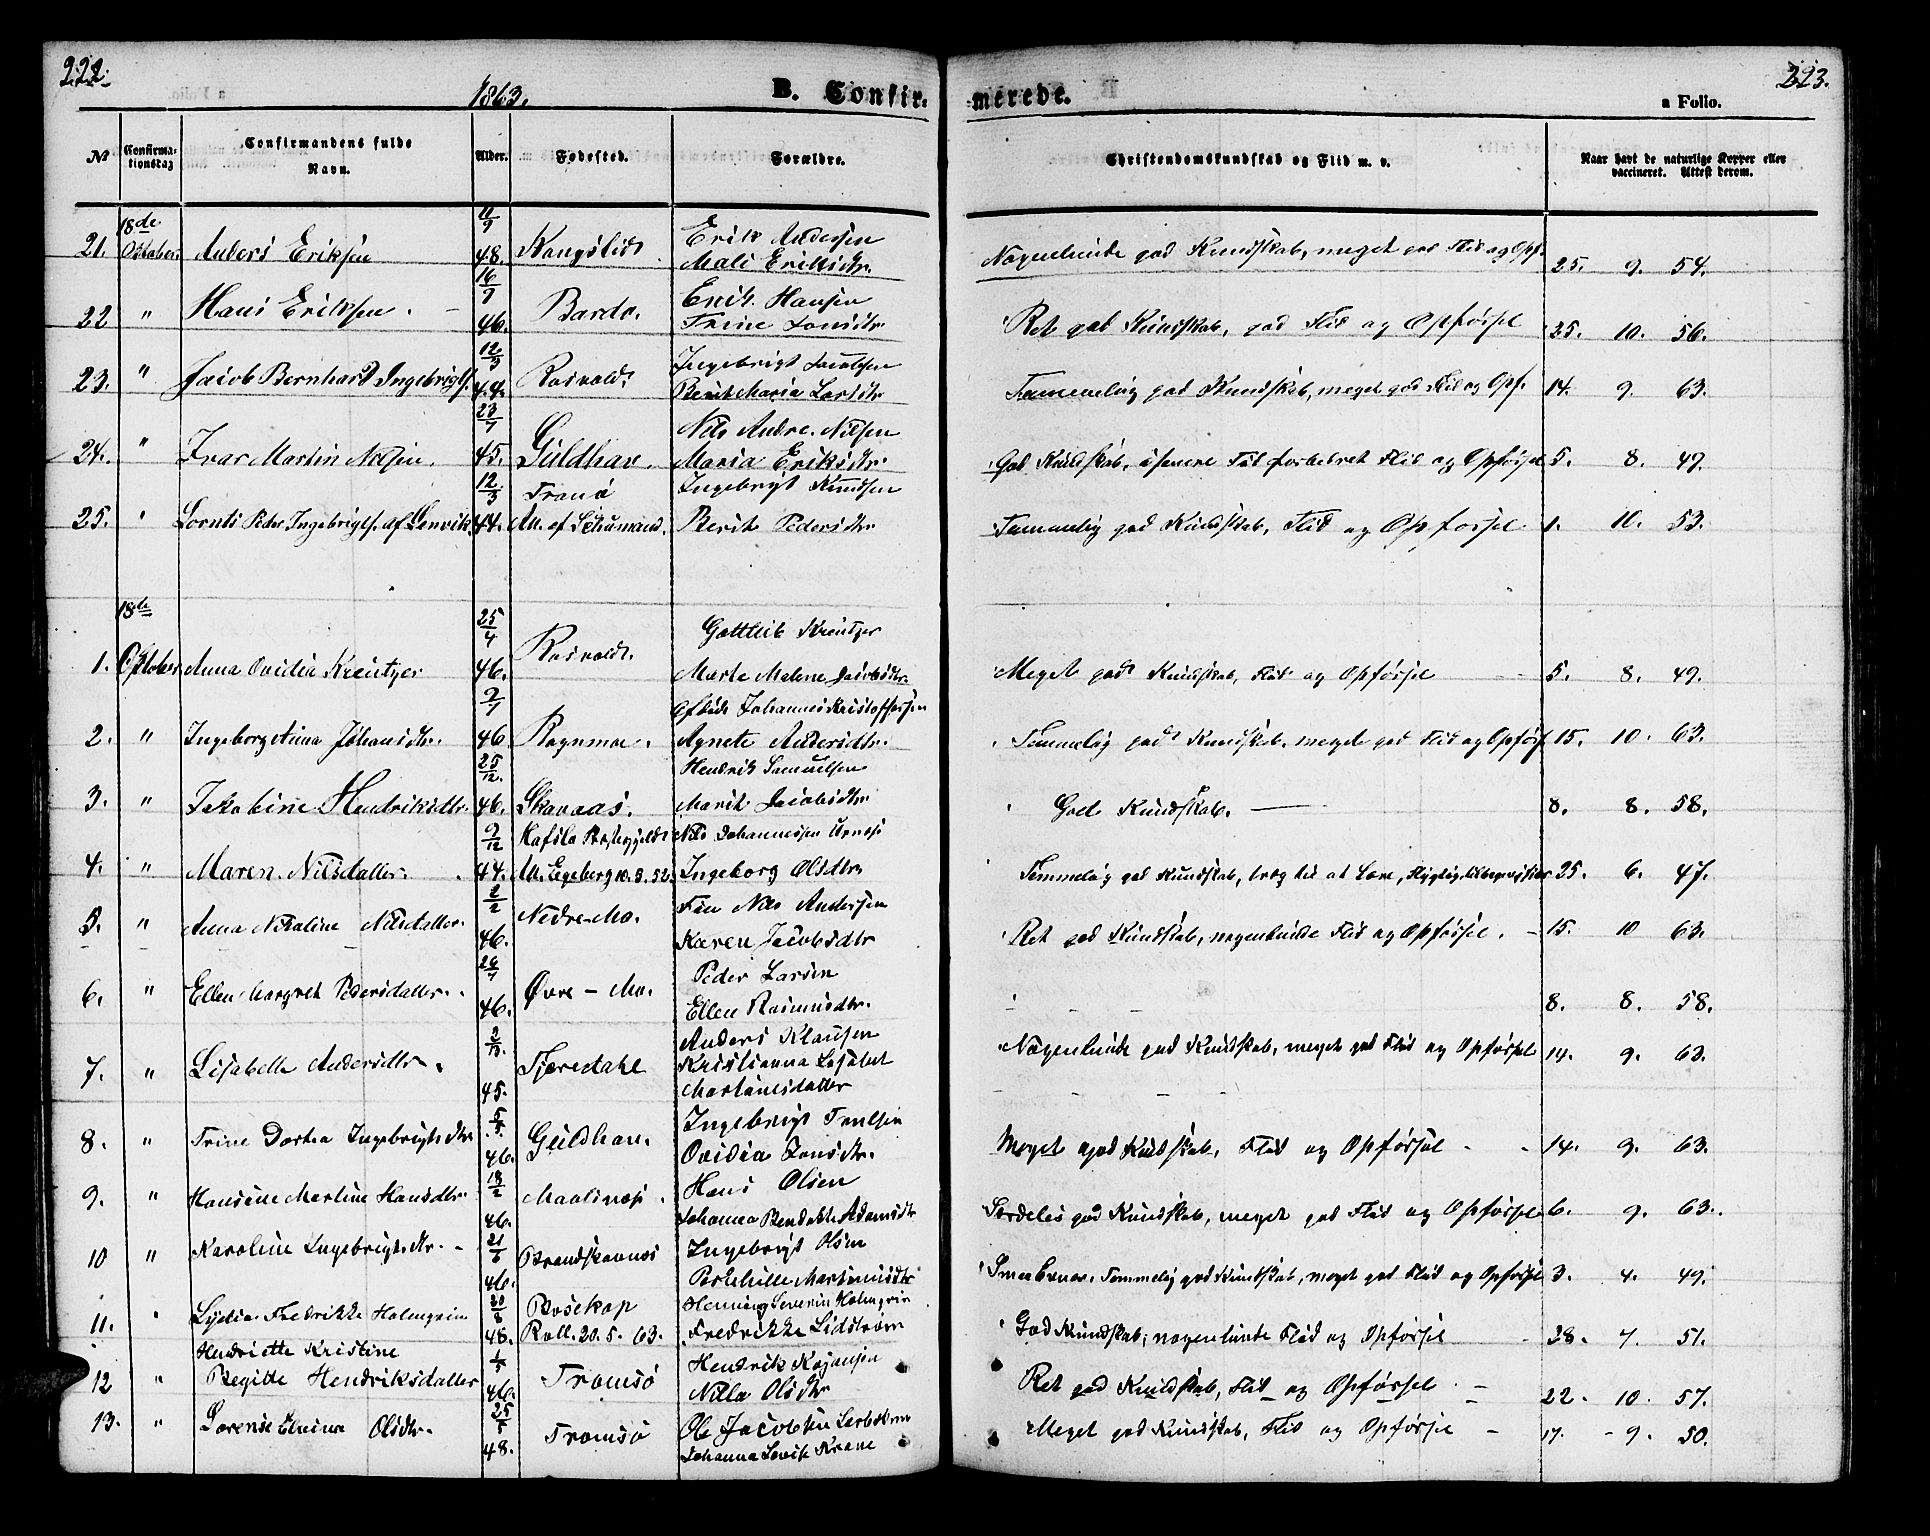 222.
1863.
B. Confir-
merede.
a Folio.
223.
No
Confirma-
tionsdag
Confirmandens fulde
Navn.
Alder.
Fødested.
Forældre.
Christendomskundskab og Flid m. v.
Naar havt de naturlige Kopper eller
vaccineret. Attest derom.
21. 18de Oktober Anders Eriksen 11/9 48. Kongslid Erik Andersen Mali Eriksdtr. Nogenlunde god Kundskab, meget god Flid og Opf. 25. 9. 54.
22 " Hans Eriksen. 16/9 46. Bardo. Erik Hansen Trine Jonsdtr Ret god Kundskab, god Flid og Opførsel 25. 10. 56.
23. " Jacob Bernhard Ingebrigts. 12/3 44. Rosvold Ingebrigt Jacobsen Berit Maria Larsdtr Temmelig god Kundskab, meget god Flid og Opf. 14. 9. 63.
24. " Ivar Martin Nilsen. 23/1 45. Guldhav. Nils Andr. Nilsen Maria Eriksdtr. God Kundskab, i senere Tid forbedret Flid og Opførsel 5. 8. 49.
25. " Lornts Peder Ingebrigts. af Lenvik 12/3 44. Tranø Att. af Schumann. Ingebrigt Knudsen Berit Pedersdtr Temmelig god Kundskab, Flid og Opførsel 1. 10. 53.
1. 18de Oktober Anna Ovidia Kreutzer 25/4 46. Rosvold. Gottlieb Kreutzer Marte Malene Jacobsdtr. Meget god Kundskab, Flid og Opførsel 5. 8. 49.
2. " Ingeborg Anna Johansdtr. 9/1 46 Rognmoe. Afdøde Johannes Kristoffersen Agnete Andersdtr. Temmelig god Kundskab, meget god Flid og Opførs. 15. 10. 63.
3. " Jakobine Hendriksdtr. 25/12. 46. Skavaas. Hendrik Samuelsen Marit Jacobsdtr God Kundskab. 8. 8. 58.
4. " Maren Nilsdatter. 9/12 44. Att. Egeberg 10.5.52. Nils Johannessen Ingeborg Olsdtr Temmelig god Kundskab, træg til at Lære, 25. 6. 47.
5. " Anna Nikoline Nilsdatter. 2/2 46. Nedre-Mo. Nils Andersen Karen Jacobsdtr Ret god Kundskab, nogenlunde Flid og Opførsel. 15. 10 63.
6. " Ellen Margret Pedersdatter. 46. Øvre-Mo. Peder Larsen Ellen Rasmusdtr. 8. 8. 58.
7. " Lisabella Andersdtr. 45. Tjeredahl Anders Klausen Kristianna Lisabet Martinusdatter Nogenlunde god Kundskab, meget god Flid og Opførsel 14. 9. 63.
8. " Trine Dortea Ingebrigtsdtr 5/5. 46. Guldhav. Ingebrigt Troelsen Ovidia Jonsdtr. Meget god Kundskab, Flid og Opførsel 14. 9. 63.
9. " Hansine Martine Hansdtr. 18/2 46. Maalsnæs. Hans Olsen Johanna Bendikte Adamsdtr Særdeles god Kundskab, meget god Flid og Opførsel 6. 9. 63.
10 " Karoline Ingebrigtsdtr. 21/6 46. Brandskovnes Ingebrigt Olsen Martinusdtr Temmelig god Kundskab, meget god Flid og Opførsel 3. 4. 49.
11. " Lydia Fredrikke Holmgren 48. Bosekop Att. 20.5.63. Henning Severin Holmgren Fredrikke Lidstrøm God Kundskab, nogenlunde Flid og Opførsel 28. 7. 51.
12 " Henriette Kristine Begitte Hendriksdatter 1/5 46. Tromsø Hendrik Kajansen Nilla Olsdtr Ret god Kundskab, Flid og Opførsel 22. 10. 57.
13. " Lorense Elmina Olsdtr. 25/5 48. Tromsø Ole Jacobsen Johanna Lovise Krane Meget god Kundskab, Flid og Opførsel 17. 9. 50.